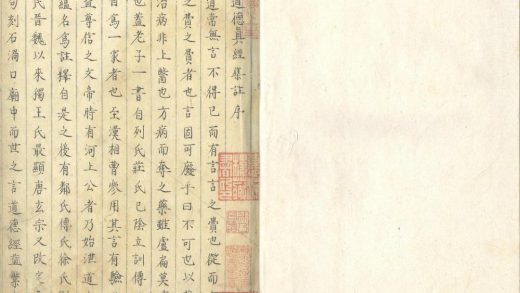 道德真經集註序
道常無言不得已而有言言之贅也從而
之贅之贅者也言固可廢乎曰不可也以
治病非上醫也方病而奪之藥雖盧扁莫
也蓋老子一書自列氏莊氏已陰立訓傳
自為一家者也至漢相曹參用其言有驗
並尊信之文帝時有河上公者乃始洩道
蘊名為註釋自是之後有鄒氏傅氏徐氏
氏晉魏以來獨王氏最顯唐玄宗又改定
句刻石渦口廟中而世之言道德經益